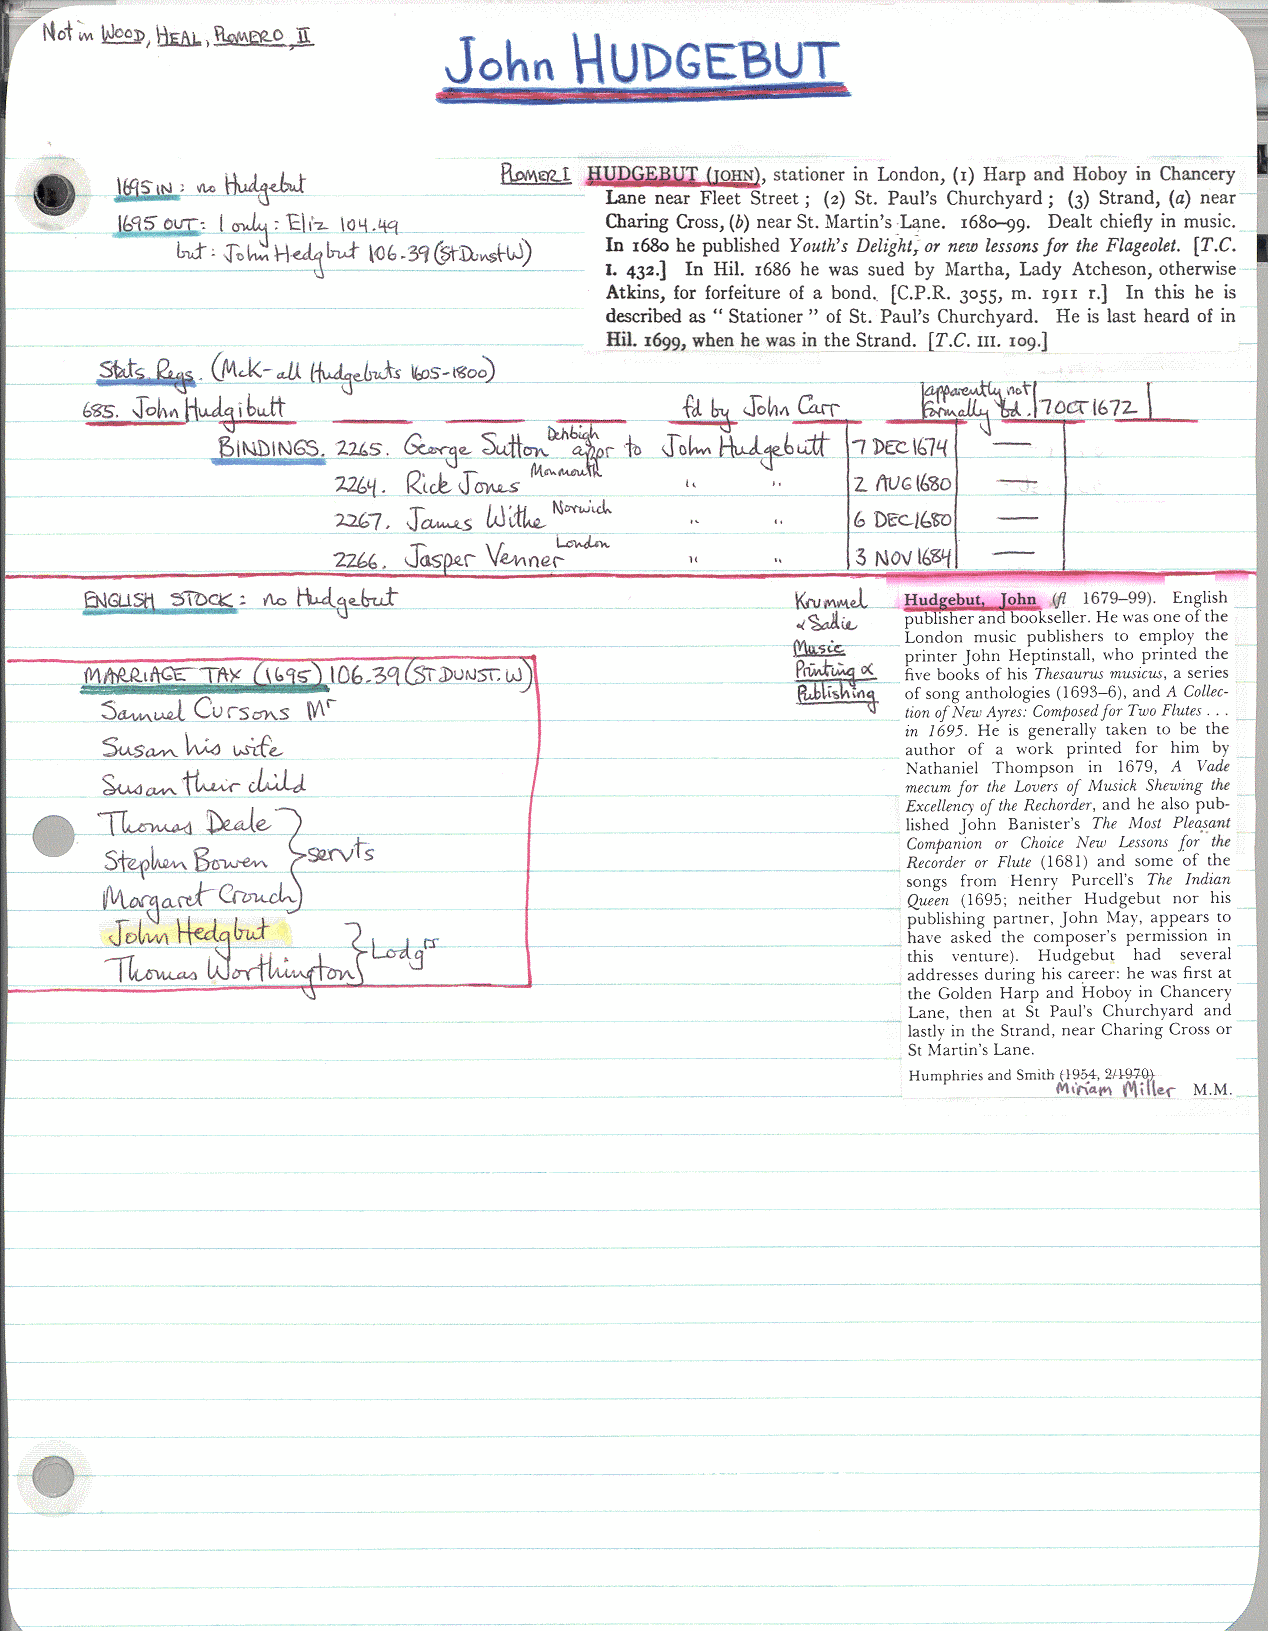 Not in WOOD, HEAL, PLOMERO, II
John HUDGEBUT
1695 IN: no Hudgebut
1695 OUT: 1 only: Eliz 104.49
but: John Hedgbut 106.39 (St Dunst W)
PLOMER I HUDGEBUT (JOHN), stationer in London, (1) Harp and Hoboy in Chancery
Lane near Fleet Street; (2) St. Paul's Churchyard; (3) Strand, (a) near
Charing Cross, (b) near St. Martin's Lane. 1680–99. Dealt chiefly in music.
In 1680 he published Youth's Delight, or new lessons for the Flageolet. [T.C.
I. 432.] In Hil. 1686 he was sued by Martha, Lady Atcheson, otherwise
Atkins, for forfeiture of a bond. [C.P.R. 3055, m. 1911 r.] In this he is
described as "Stationer" of St. Paul's Churchyard. He is last heard of in
Hil. 1699, when he was in the Strand. [T.C. III. 109.]
Stats. Regs. (McK - all Hudgebuts 1605-1800)
685. John Hudgibutt fd by John Carr apparently not formally bd. 7 OCT 1672
BINDINGS. 2265. George Sutton Denbigh appr to John Hudgebutt 7 DEC 1674 —
2264. Rick Jones Monmouth " " 2 AUG 1680 —
2267. James Withe Norwich " " 6 DEC 1680 —
2266. Jasper Venner London " " 3 NOV 1684 —
ENGLISH STOCK: no Hudgebut
MARRIAGE TAX (1695) 106.39 (ST DUNST. W)
Samuel Cursons Mr
Susan his wife
Susan their child
Thomas Deale
Stephen Bowen } servts
Margaret Crouch
John Hedgbut
Thomas Worthington } Lodgrs
Krummel
& Sadie
Music
Printing &
Publishing
Hudgebut, John (fl 1679–99). English
publisher and bookseller. He was one of the
London music publishers to employ the
printer John Heptinstall, who printed the
five books of his Thesaurus musicus, a series
of song anthologies (1693–6), and A Collec-
tion of New Ayres: Composed for Two Flutes . . .
in 1695. He is generally taken to be the
author of a work printed for him by
Nathaniel Thompson in 1679, A Vade
mecum for the Lovers of Musick Shewing the
Excellency of the Rechorder, and he also pub-
lished John Banister's The Most Pleasant
Companion or Choice New Lessons for the
Recorder or Flute (1681) and some of the
songs from Henry Purcell's The Indian
Queen (1695; neither Hudgebut nor his
publishing partner, John May, appears to
have asked the composer's permission in
this venture). Hudgebut had several
addresses during his career: he was first at
the Golden Harp and Hoboy in Chancery
Lane, then at St Paul's Churchyard and
lastly in the Strand, near Charing Cross or
St Martin's Lane.
Humphries and Smith (1954, 2/1970)
Miriam Miller M.M.